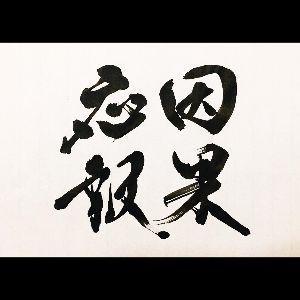 因果
応報